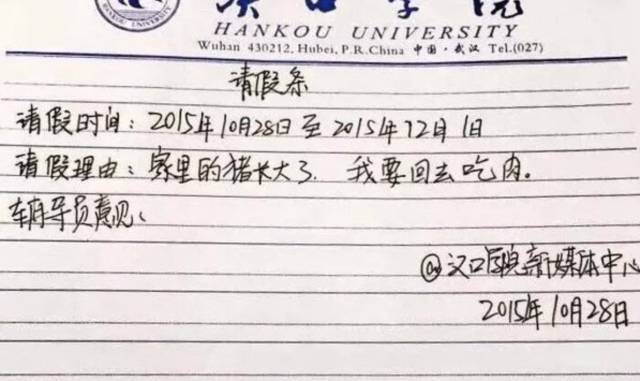 HANKOU UNIVERSITY
Wuhan 430212, Hubei, P.R.China 中国·武汉 Tel.(027)
请假条
请假时间：2015年10月28日至2015年12月1日
请假理由：家里的猪长大了，我要回去吃肉。
辅导员意见：
@汉口学院新媒体中心
2015年10月28日